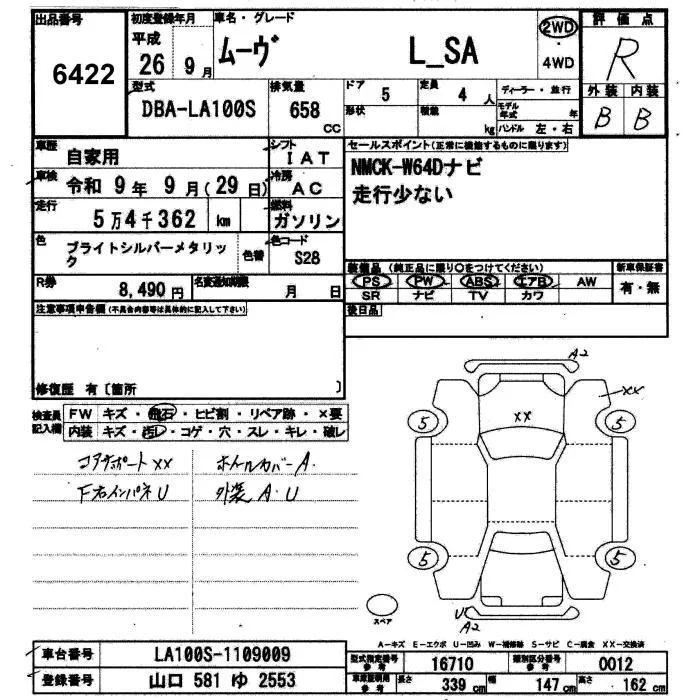 出品番号
6422
初度登録年月
平成
26 9月
車名・グレード
ムーヴ L_SA
2WD
4WD
評価点
R
外装 内装
B B
型式
DBA-LA100S
排気量
658
CC
ドア
5
定員
4人
形状
積載
kg
ディーラー・並行
モデル年式 年
ハンドル 左・右
車歴
自家用
シフト
IAT
車検
令和 9年 9月(29日)
冷房
AC
走行
5万4千362 km
燃料
ガソリン
色
ブライトシルバーメタリッ
ク
色替
色コード
S28
R券
8,490円
名変通知期限
月 日
セールスポイント(正常に機能するものに限ります)
NMCK-W64Dナビ
走行少ない
装備品 (純正品に限り○をつけてください)
新車保証書
PS PW ABS エアB AW
有・無
SR ナビ TV カワ
後日品
注意事項申告欄(不具合内容等は具体的に記入して下さい)
修復歴 有〔箇所 〕
検査員
記入欄
FW キズ・飛石・ヒビ割・リペア跡・×要
内装 キズ・汚レ・コゲ・穴・スレ・キレ・破レ
コアサポートXX ホイルカバーA.
F右インパネU 外装A.U
A2
XX
XX
5 5
5 5
U
A2
スペア
A-キズ E-エクボ U-凹み W-補修跡 S-サビ C-腐食 XX-交換済
車台番号
LA100S-1109009
登録番号
山口 581 ゆ 2553
型式指定番号
参考
16710
類別区分番号
参考
0012
車検証明用
参考
長さ 339 cm 幅 147 cm 高さ 162 cm